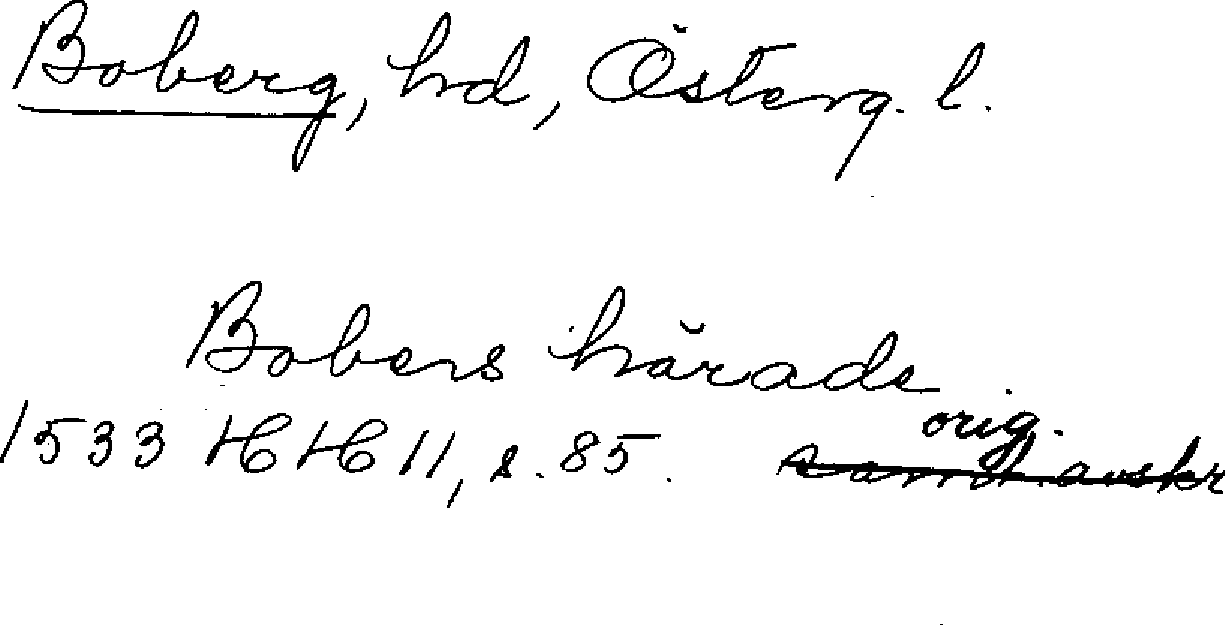 Boberg, hd, Österg. l.
Bobers härade
orig.
1533 HH 11, s. 85. samt. avskr